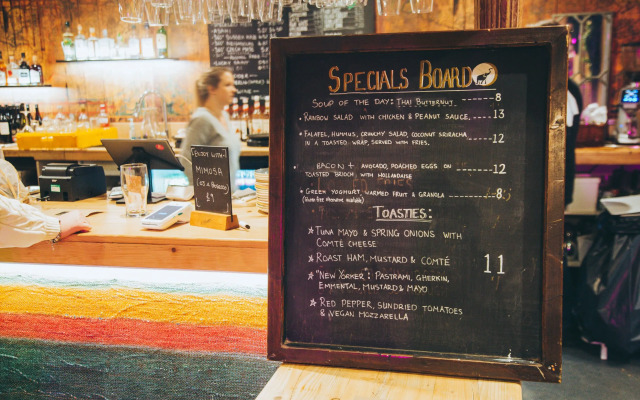 SPECIALS BOARD
SOUP OF THE DAY: THAI BUTTERNUT 8
RAINBOW SALAD WITH CHICKEN & PEANUT SAUCE 13
FALAFEL, HUMMUS, CRUNCHY SALAD, COCONUT SRIRACHA
IN A TOASTED WRAP, SERVED WITH FRIES. 12
BACON + AVOCADO, POACHED EGGS ON
TOASTED BRIOCH 12
GREEN YOGHURT, WARMED FRUIT & GRANOLA 8
TOASTIES:
TUNA MAYO & SPRING ONIONS WITH
COMTÉ CHEESE
ROAST HAM, MUSTARD & COMTÉ
11
"NEW YORKER": PASTRAMI, GHERKIN,
EMMENTAL, MUSTARD & MAYO
RED PEPPER, SUNDRIED TOMATOES
& VEGAN MOZZARELLA
ENJOY WITH A
MIMOSA
£9